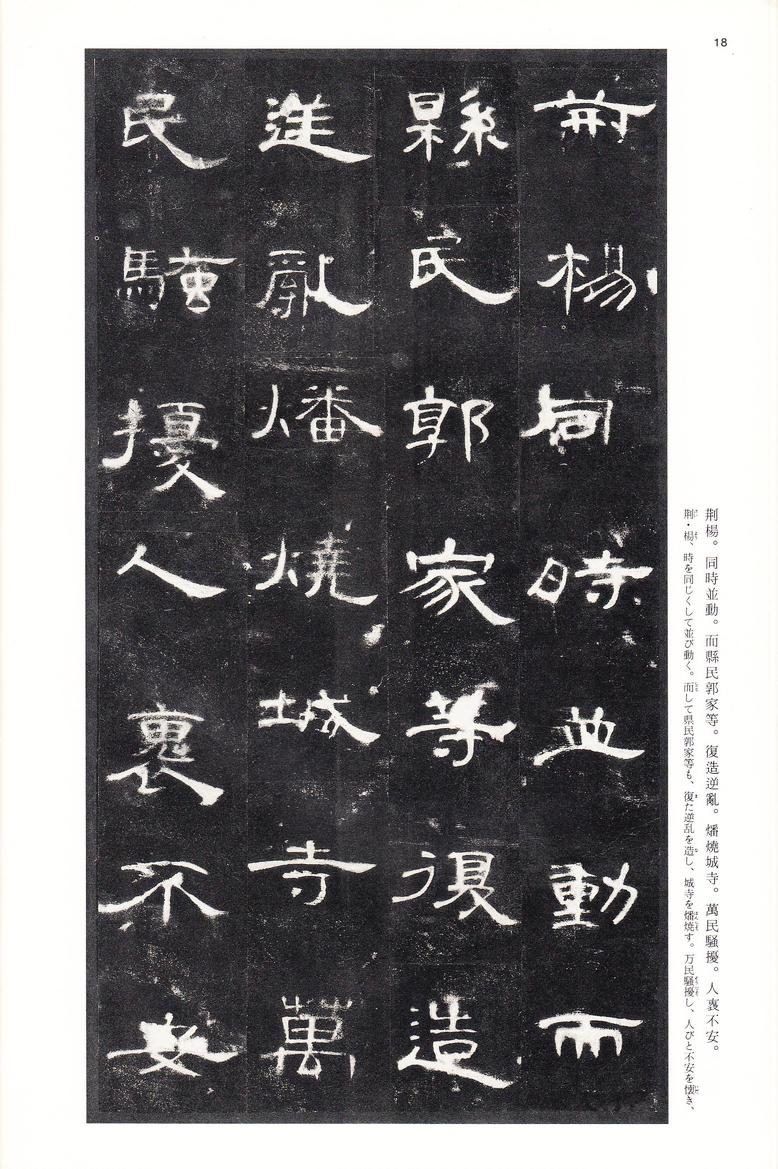 18
荆楊同時並動而
縣民郭家等復造
逆亂燔燒城寺萬
民騷擾人裛不安
荆楊。同時並動。而縣民郭家等。復造逆亂。燔燒城寺。萬民騷擾。人裛不安。
荆・楊、時を同じくして並び動く。而して県民郭家等も、復た逆乱を造し、城寺を燔焼す。万民騒擾し、人びと不安を懐き、